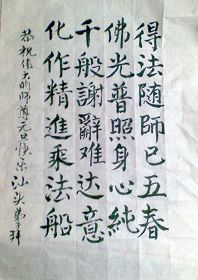 得法随師已五春
佛光普照身心純
千般謝辭难达意
化作精進乘法船
恭祝伟大的師尊元旦快乐
汕头弟子拜